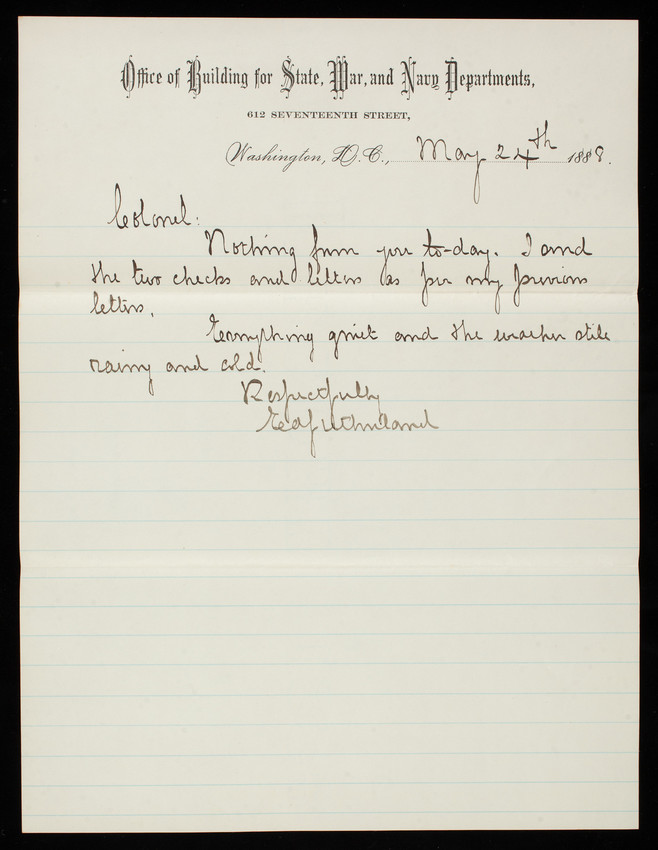 Office of Building for State, War, and Navy Departments,
612 SEVENTEENTH STREET,
Washington, D.C., May 24th 1888.
Colonel:
Nothing from you to-day. I send
the two checks and letters as per my previous
letters.
Everything quiet and the weather still
rainy and cold.
Respectfully